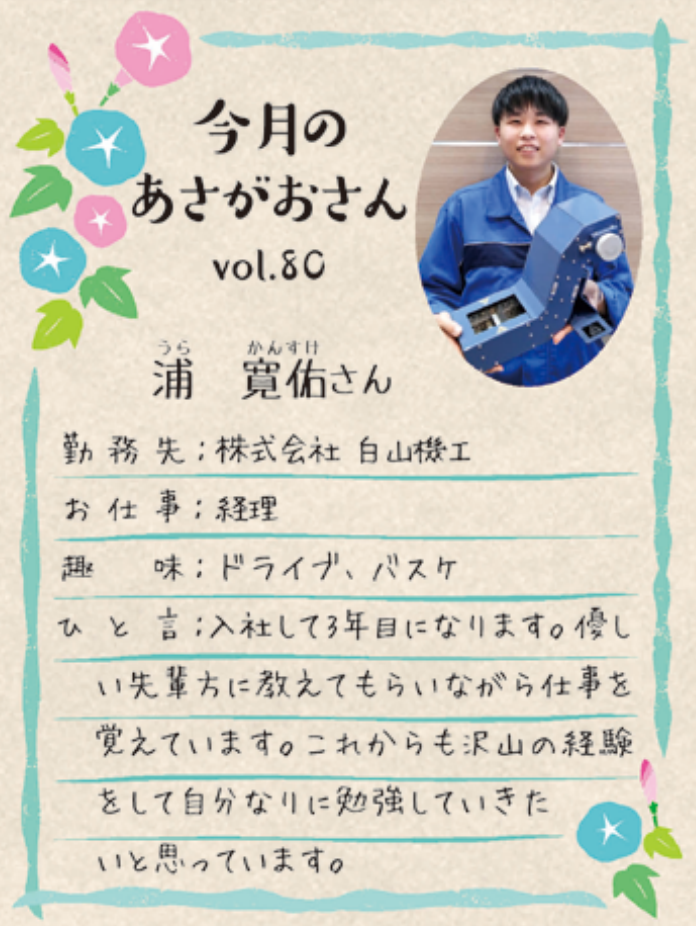 今月の
あさがおさん
vol.80
うら かんすけ
浦 寛佑さん
勤務先;株式会社 白山機工
お仕事;経理
趣味;ドライブ、バスケ
ひと言;入社して3年目になります。優し
い先輩方に教えてもらいながら仕事を
覚えています。これからも沢山の経験
をして自分なりに勉強していきた
いと思っています。